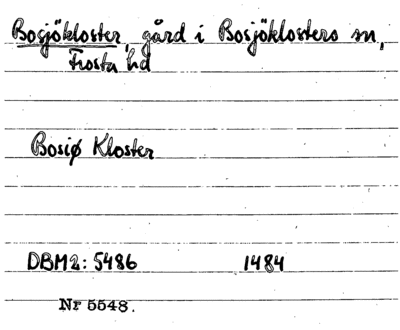 Bosjökloster, gård i Bosjöklosters sn,
Frosta hd
Bosiø Kloster
DBM2: 5486 1484
Nr 5548.